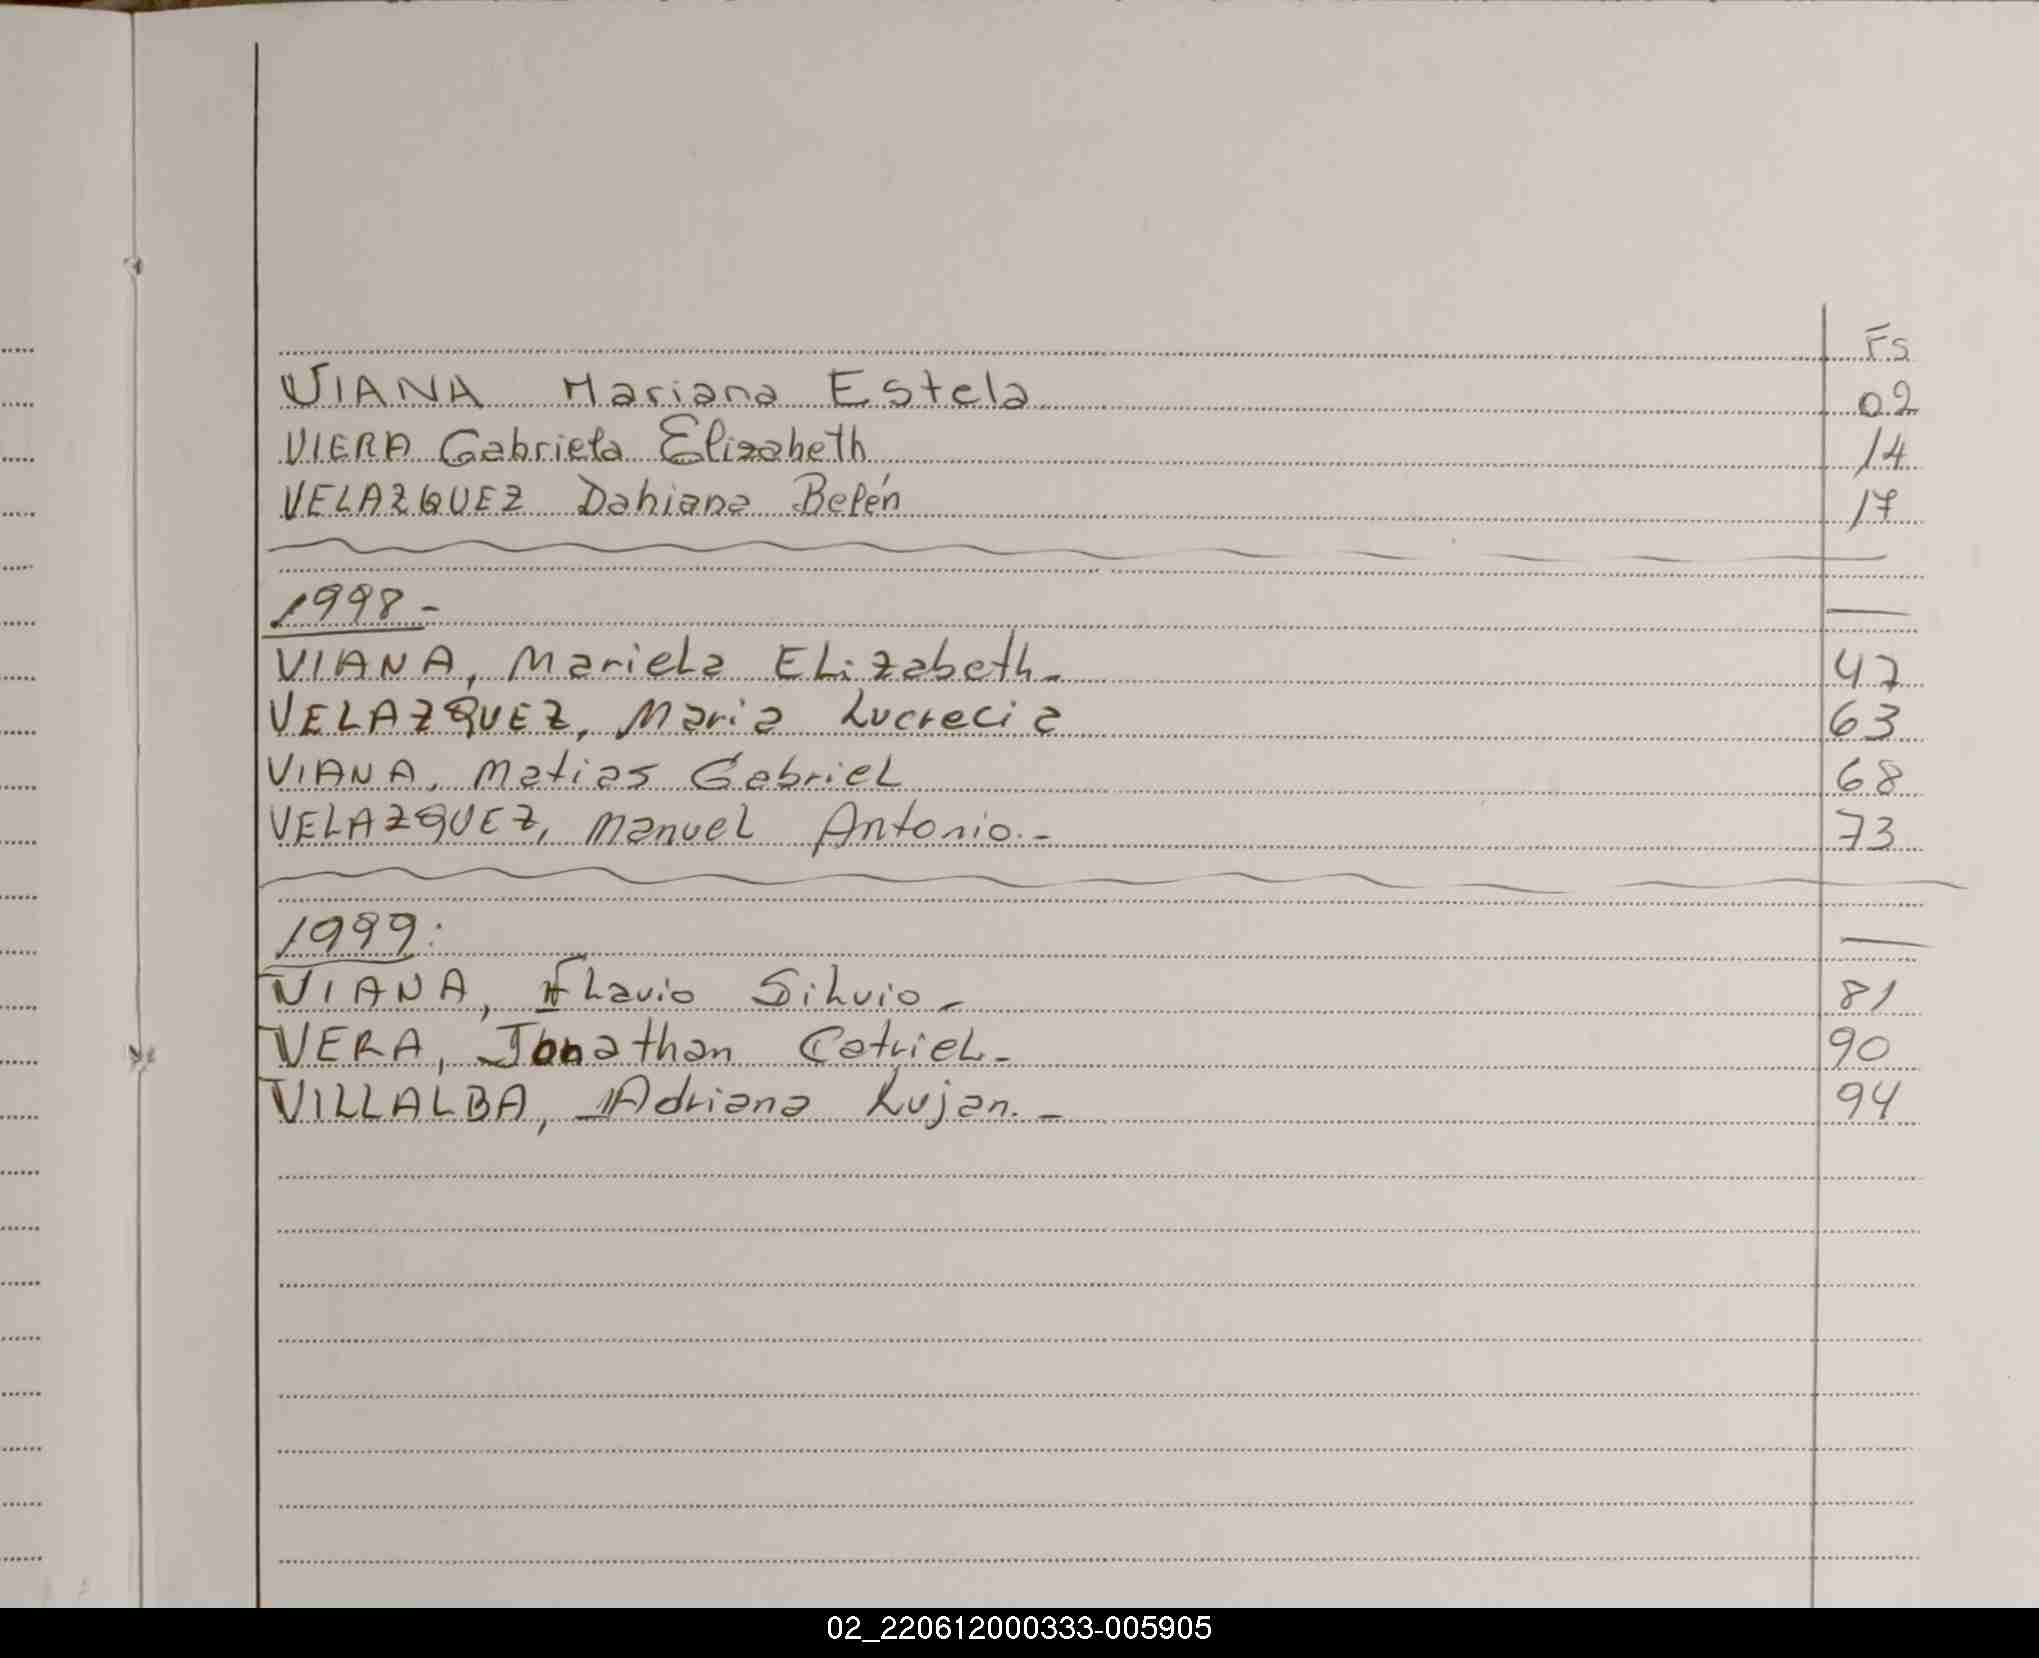 Fs
VIANA Mariana Estela 02
VIERA Gabriela Elizabeth 14
VELAZQUEZ Dahiana Belén 17
1998-
VIANA, Mariela ELizabeth- 47
VELAZQUEZ, Maria Lucrecia 63
VIANA, Matias Gabriel 68
VELAZQUEZ, Manuel Antonio.- 73
1999:
VIANA, Flavio Silvio- 81
VERA, Jonathan Catriel- 90
VILLALBA, Adriana Lujan.- 94
02_220612000333-005905